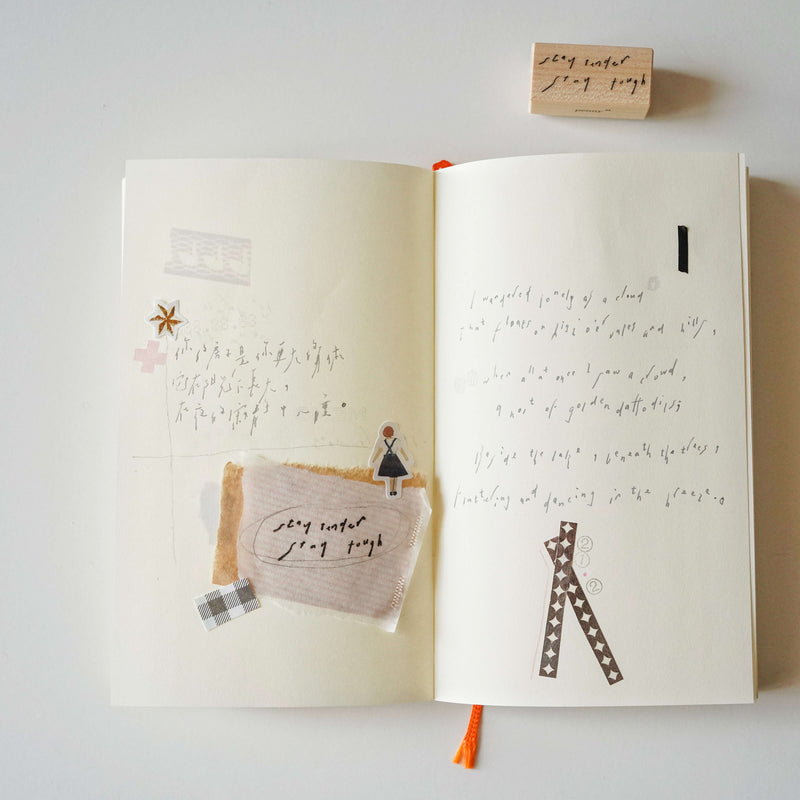 stay tender
stay tough
你的房子是你更大的身体
它在陽光下長大,
在夜的寂靜中入睡。
stay tender
stay tough
I wandered lonely as a cloud
that floats on high o'er vales and hills,
when all at once I saw a crowd,
a host of golden daffodils;
Beside the lake, beneath the trees,
Fluttering and dancing in the breeze.
②
①
②